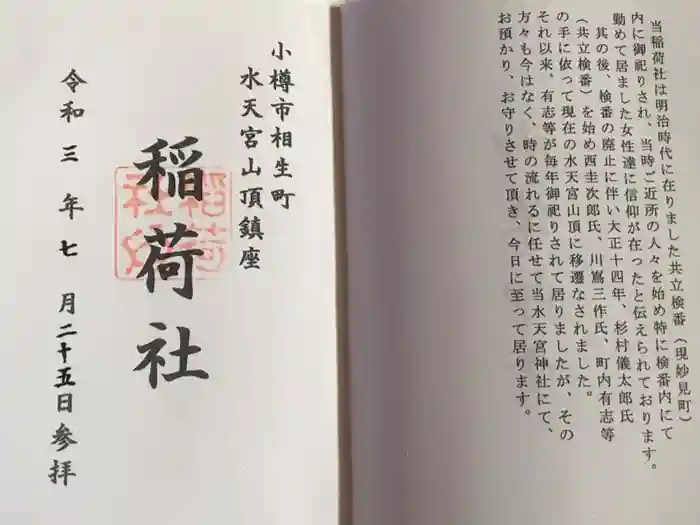 当稲荷社は明治時代に在りました共立検番(現妙見町)
内に御祀りされ、当時ご近所の人々を始め特に検番内にて
勤めて居ました女性達に信仰が在ったと伝えられております。
其の後、検番の廃止に伴い大正十四年、杉村儀太郎氏
(共立検番)を始め西圭次郎氏、川嶌三作氏、町内有志等
の手に依って現在の水天宮山頂に移遷なされました。
それ以来、有志等が毎年御祀りされて居りましたが、その
方々も今はなく、時の流れるに任せて当水天宮神社にて、
お預かり、お守りさせて頂き、今日に至って居ります。
小樽市相生町
水天宮山頂鎮座
稲荷社
令和三年七月二十五日参拝